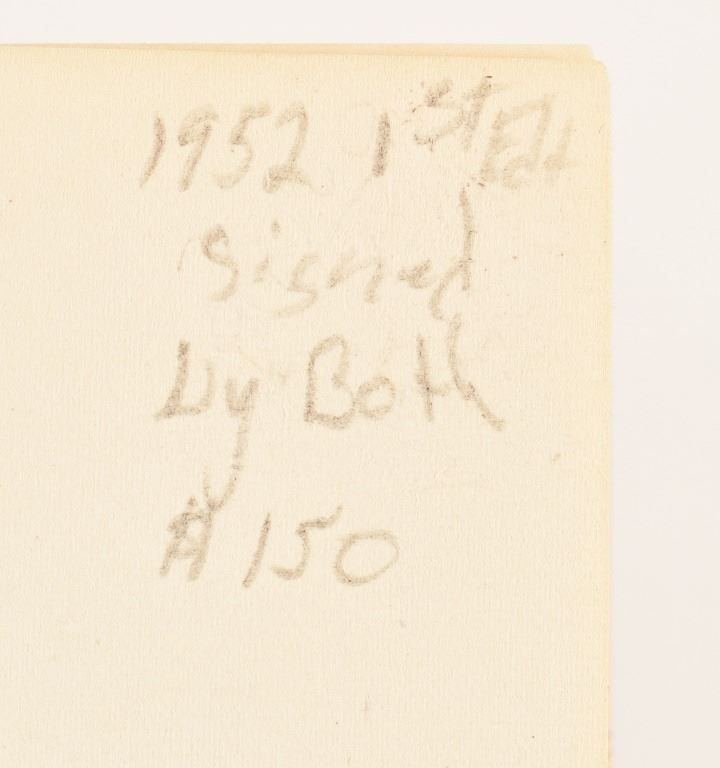 1952 1st Ed
Signed
by Both
A 150